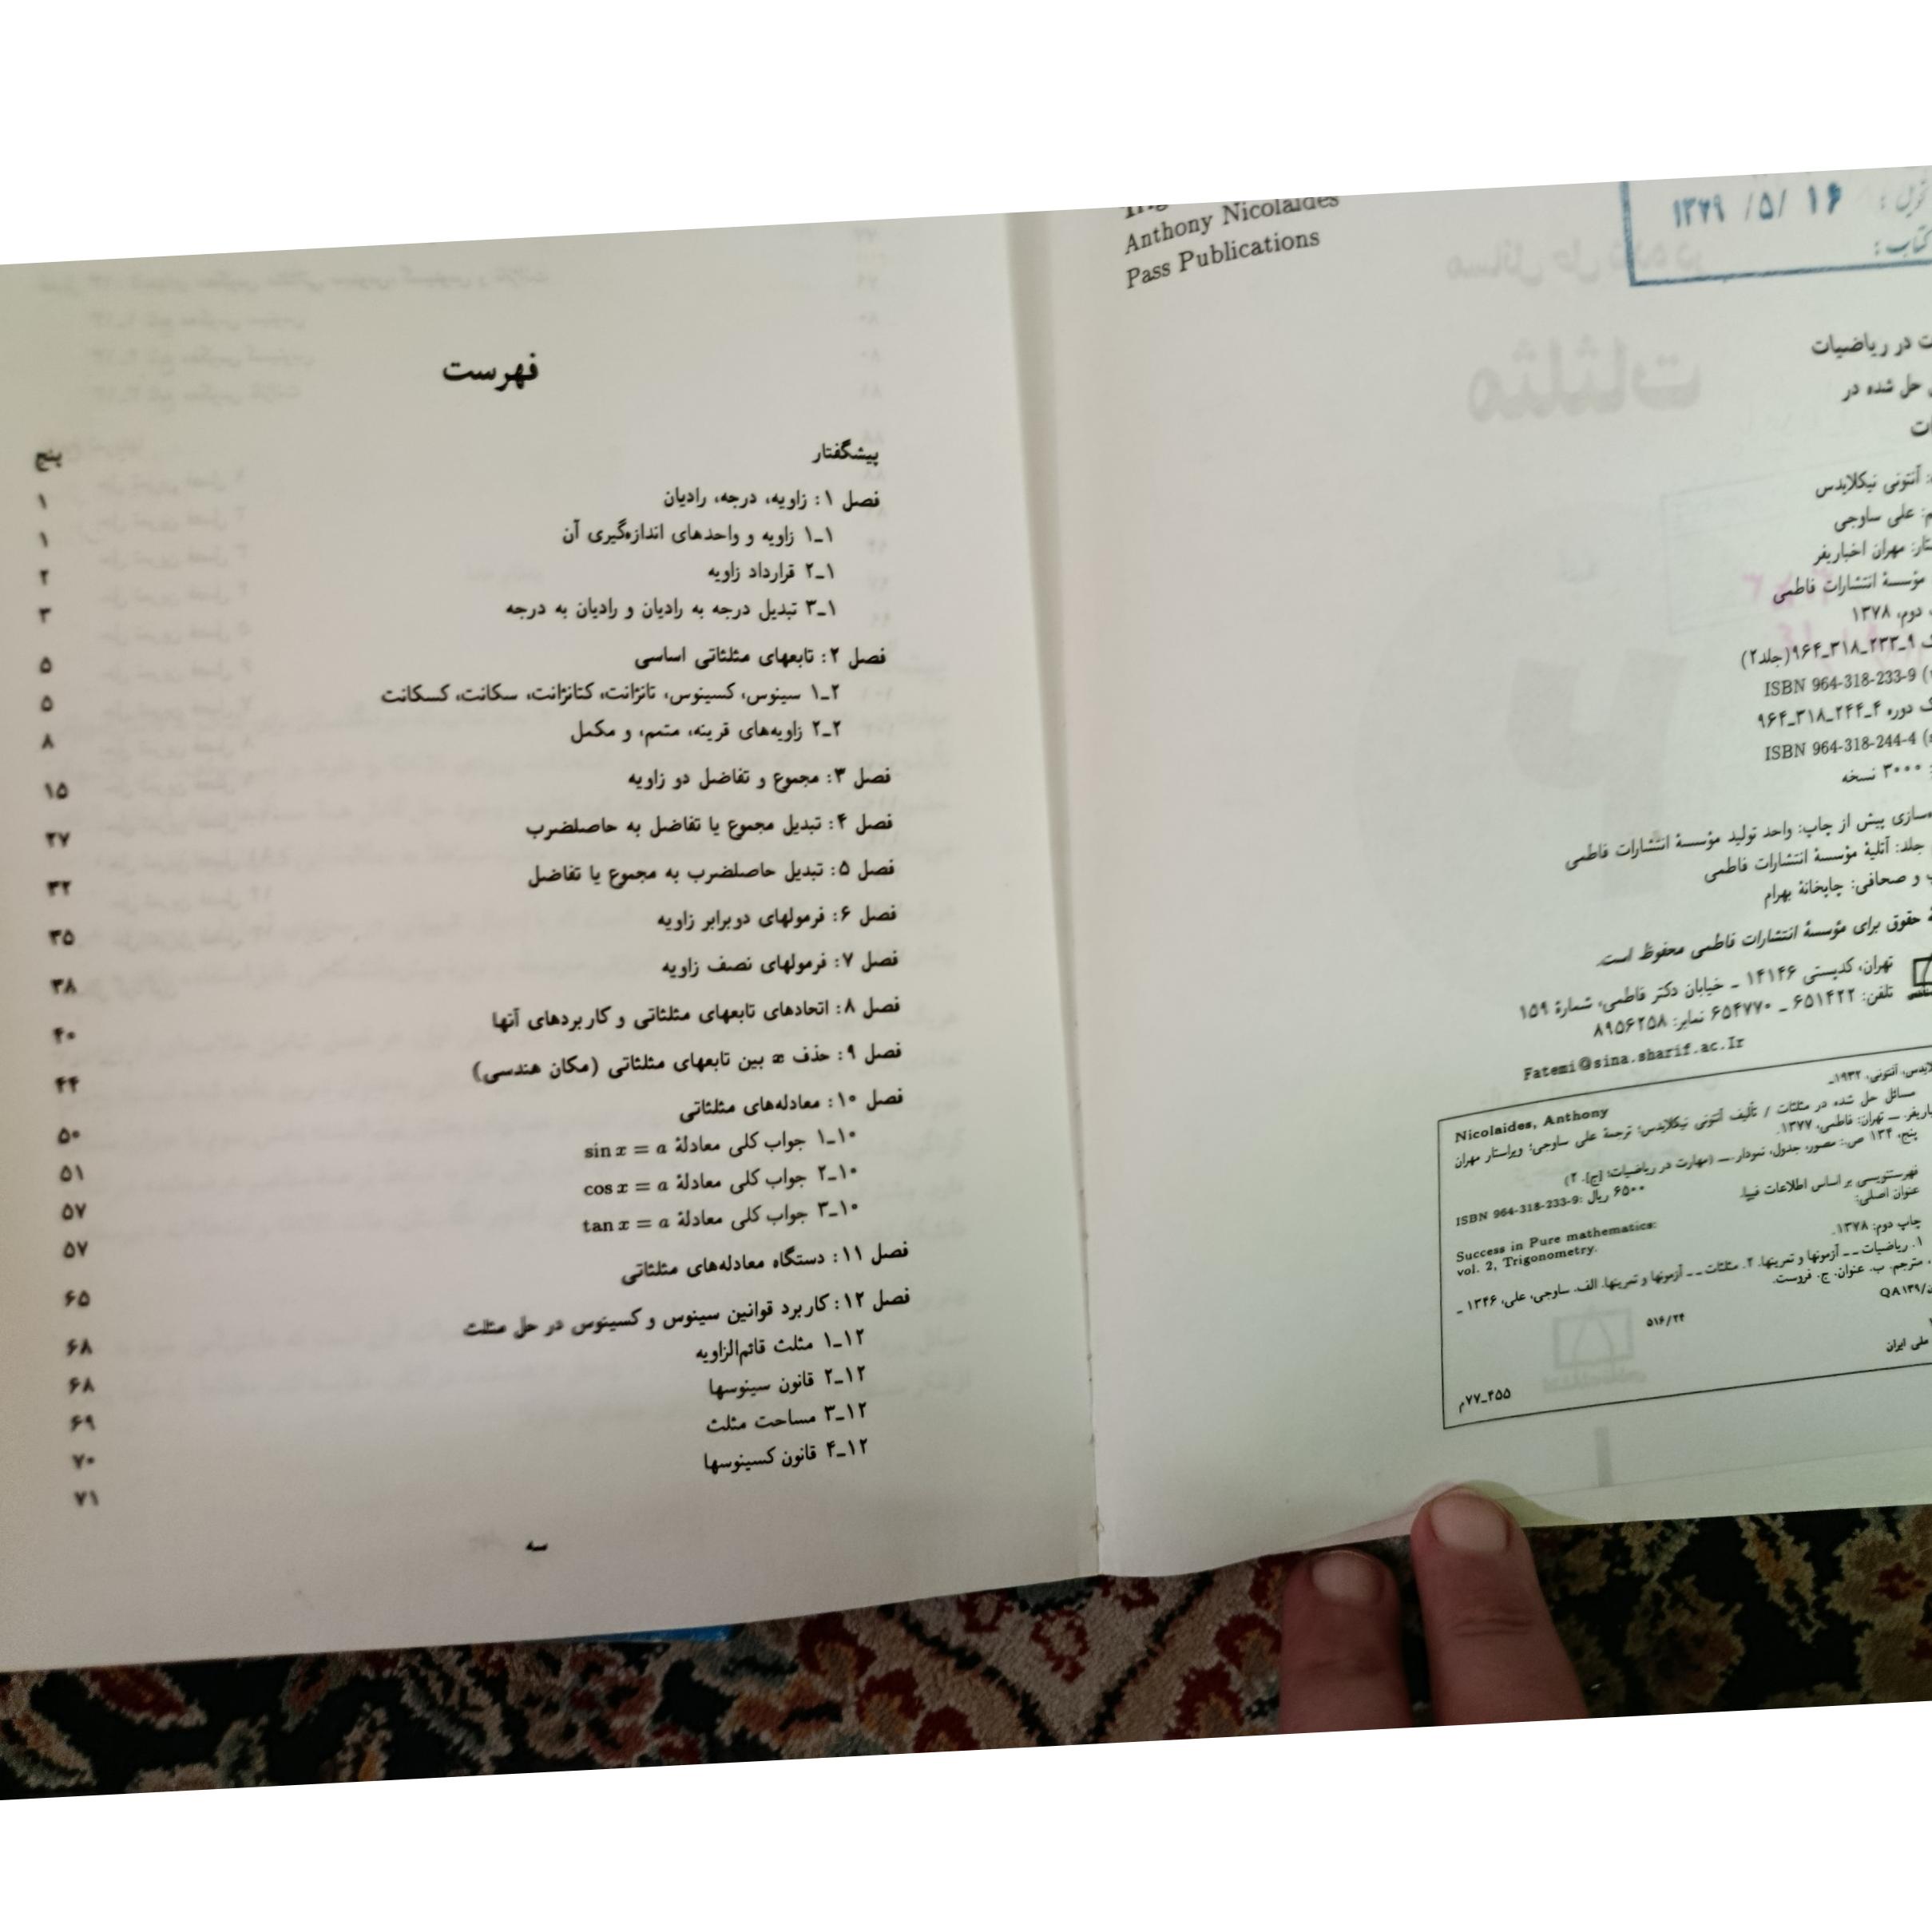 Anthony Nicolaides
Pass Publications
۱۳۷۹ /۵/ ۱۶
در ریاضیات
حل شده در
آنتونی نیکلایدس
علی ساوجی
مهران اخباریفر
مؤسسهٔ انتشارات فاطمی
دوم، ۱۳۷۸
۹۶۴_۳۱۸_۲۳۳_۹ (جلد۲)
ISBN 964-318-233-9
دوره ۴_۲۴۴_۳۱۸_۹۶۴
ISBN 964-318-244-4
۳۰۰۰ نسخه
سازی پیش از چاپ: واحد تولید مؤسسهٔ انتشارات فاطمی
جلد: آتلیهٔ مؤسسهٔ انتشارات فاطمی
و صحافی: چاپخانهٔ بهرام
حقوق برای مؤسسهٔ انتشارات فاطمی محفوظ است.
تهران، کدپستی ۱۴۱۴۶ _ خیابان دکتر فاطمی، شمارهٔ ۱۵۹
تلفن: ۶۵۱۴۲۲ _ ۶۵۴۷۷۰ نمابر: ۸۹۵۶۲۵۸
Fatemi@sina.sharif.ac.Ir
آنتونی، ۱۹۳۲_
Nicolaides, Anthony
مسائل حل شده در مثلثات / تألیف آنتونی نیکلایدس؛ ترجمهٔ علی ساوجی؛ ویراستار مهران
تهران: فاطمی، ۱۳۷۷.
پنج، ۱۳۴ ص.: مصور، جدول، نمودار.__ (مهارت در ریاضیات؛ [ج]. ۲)
ISBN 964-318-233-9: ۶۵۰۰ ریال
فهرستنویسی بر اساس اطلاعات فیپا.
عنوان اصلی:
Success in Pure mathematics:
vol. 2, Trigonometry.
چاپ دوم: ۱۳۷۸.
۱. ریاضیات__ آزمونها و تمرینها. ۲. مثلثات__ آزمونها و تمرینها. الف. ساوجی، علی، ۱۳۴۶ _
مترجم. ب. عنوان. ج. فروست.
۵۱۶/۲۴
QA۱۳۹/
ملی ایران
۴۵۵_۷۷م
فهرست
پیشگفتار پنج
فصل ۱: زاویه، درجه، رادیان ۱
۱_۱ زاویه و واحدهای اندازه‌گیری آن ۱
۱_۲ قرارداد زاویه ۲
۱_۳ تبدیل درجه به رادیان و رادیان به درجه ۳
فصل ۲: تابعهای مثلثاتی اساسی ۵
۲_۱ سینوس، کسینوس، تانژانت، کتانژانت، سکانت، کسکانت ۵
۲_۲ زاویه‌های قرینه، متمم، و مکمل ۸
فصل ۳: مجموع و تفاضل دو زاویه ۱۵
فصل ۴: تبدیل مجموع یا تفاضل به حاصلضرب ۲۷
فصل ۵: تبدیل حاصلضرب به مجموع یا تفاضل ۳۲
فصل ۶: فرمولهای دوبرابر زاویه ۳۵
فصل ۷: فرمولهای نصف زاویه ۳۸
فصل ۸: اتحادهای تابعهای مثلثاتی و کاربردهای آنها ۴۰
فصل ۹: حذف x بین تابعهای مثلثاتی (مکان هندسی) ۴۴
فصل ۱۰: معادله‌های مثلثاتی ۵۰
۱۰_۱ جواب کلی معادلهٔ sin x = a ۵۱
۱۰_۲ جواب کلی معادلهٔ cos x = a ۵۷
۱۰_۳ جواب کلی معادلهٔ tan x = a ۵۷
فصل ۱۱: دستگاه معادله‌های مثلثاتی ۶۵
فصل ۱۲: کاربرد قوانین سینوس و کسینوس در حل مثلث ۶۸
۱۲_۱ مثلث قائم‌الزاویه ۶۸
۱۲_۲ قانون سینوسها ۶۹
۱۲_۳ مساحت مثلث ۷۰
۱۲_۴ قانون کسینوسها ۷۱
سه